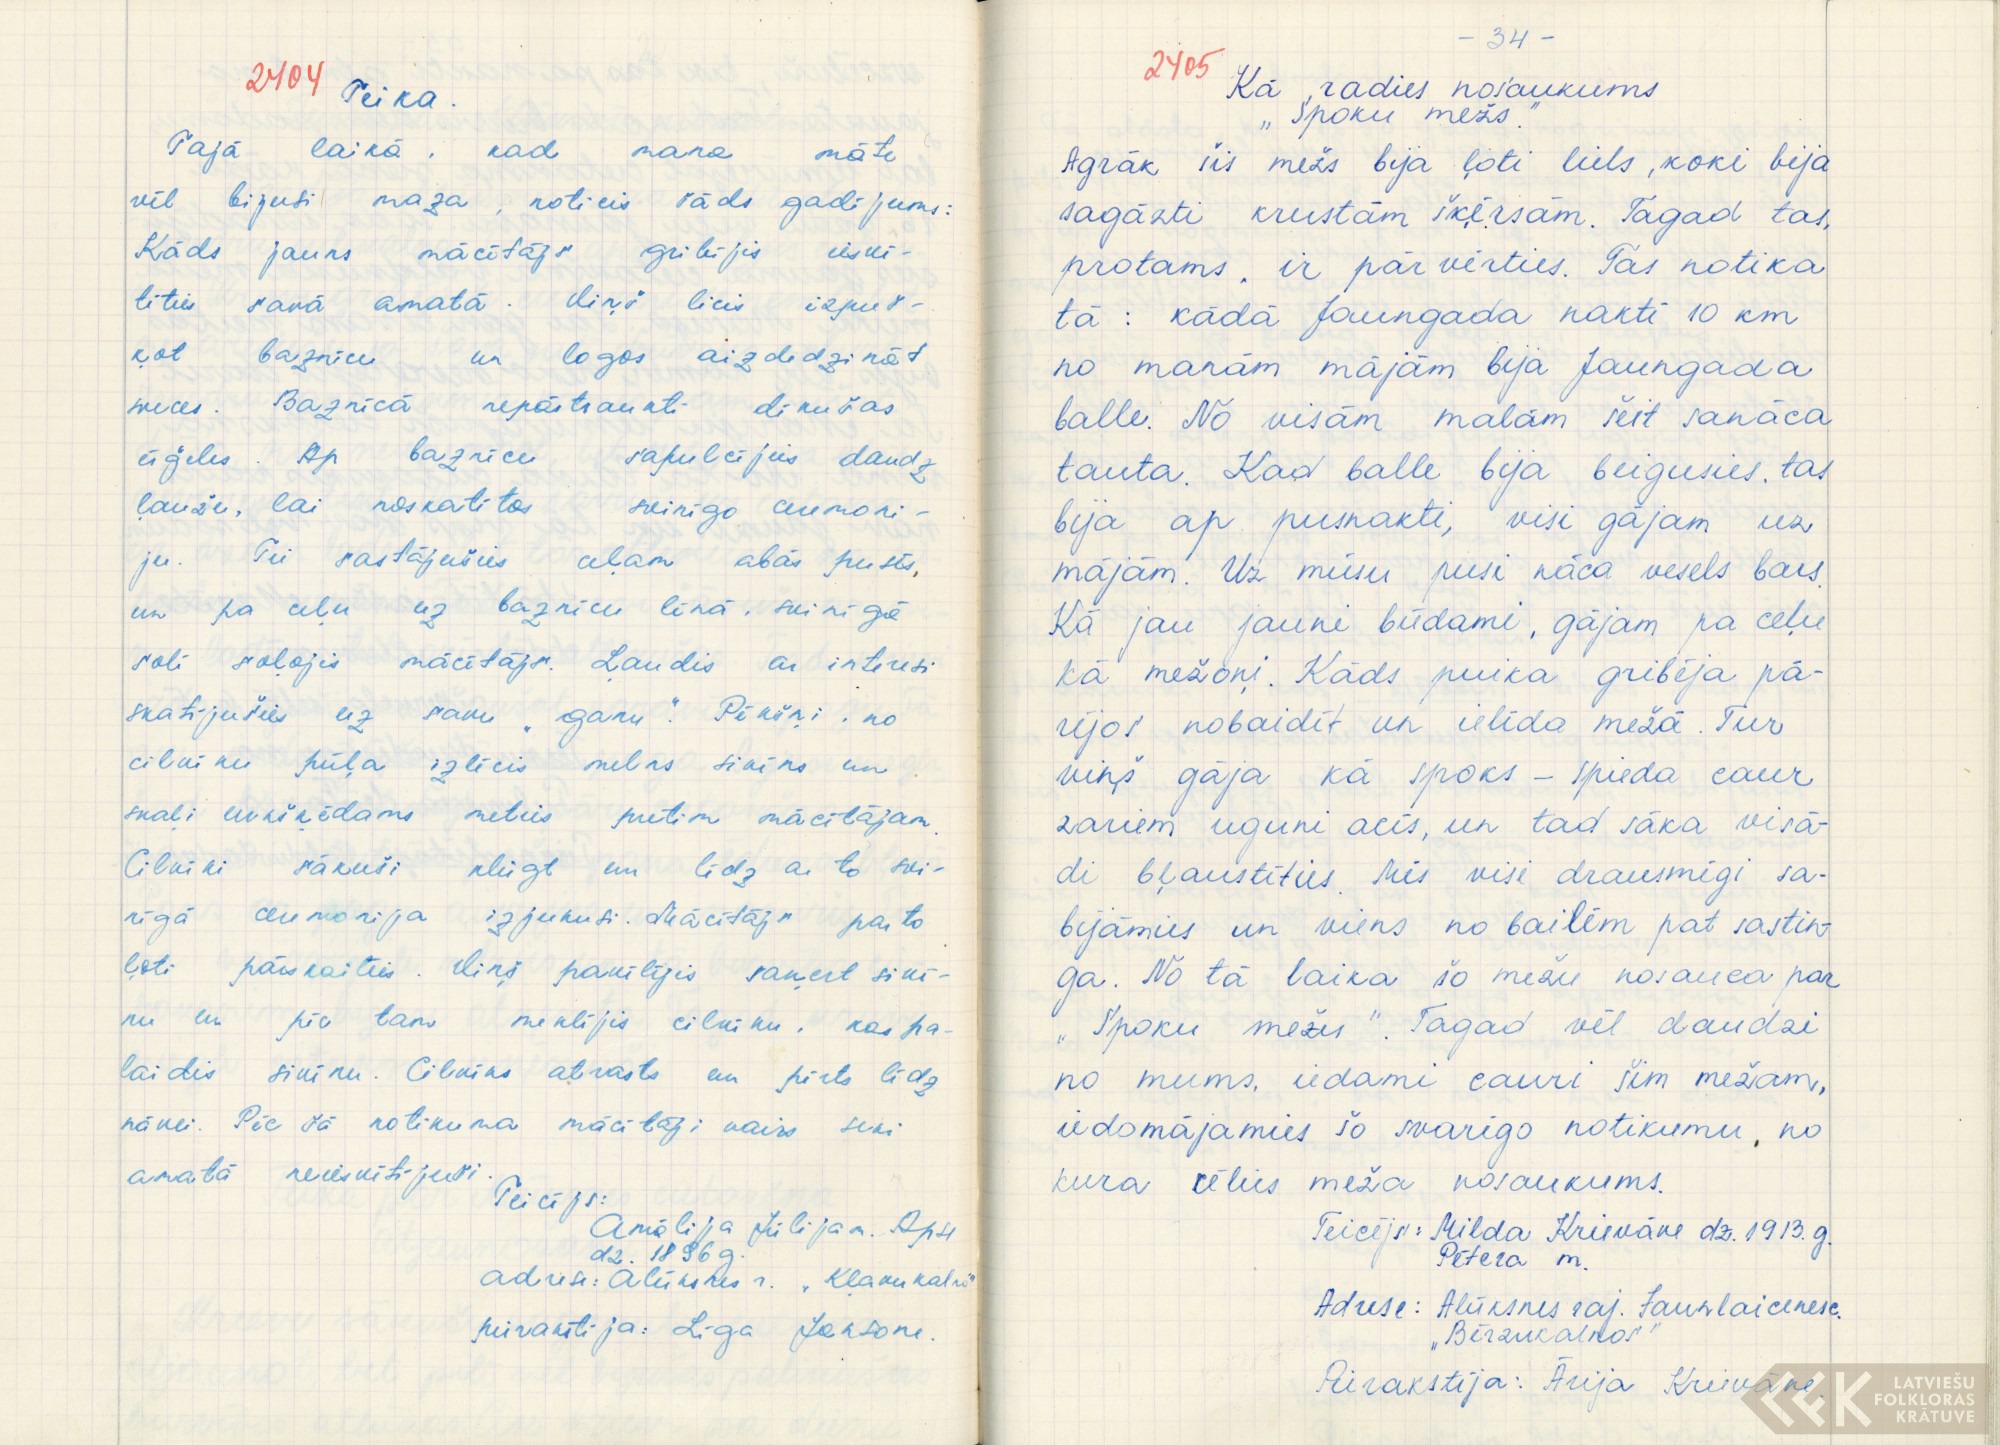 2404
Teika.
Tajā laikā, kad mana māte
vēl bijusi maza, noticis šāds gadījums:
Kāds jauns mācītājs gribējis iesvē-
tīties savā amatā. Viņš licis izpuš-
ķot baznīcu un logos aizdedzināt
sveces. Baznīcā nepārtraukti dikušas
ērģeles. Ap baznīcu sapulcējies daudz
ļaužu, lai noskatītos svinīgo ceremoni-
ju. Tie sastājušies ceļam abās pusēs,
un pa ceļu uz baznīcu lēnā, svinīgā
solī soļojis mācītājs. Ļaudis ar interesi
skatījušies uz savu „ganu". Pēkšņi, no
cilvēku pūļa izlēcis melns sivēns un
skaļi kvikšķēdams meties pretim mācītājam.
Cilvēki sākuši kliegt un līdz ar to svi-
nīgā ceremonija izjukusi. Mācītājs par to
ļoti pārskaities. Viņš pavēlējis saķert sivē-
nu un pēc tam meklējis cilvēku, kas pa-
laidis sivēnu. Cilvēks atrasts un pērts līdz
nāvei. Pēc šā notikuma mācītāji vairs sevi
amatā neiesvētījuši.
Teicējs:
Amālija Jūlija m. Apse
dz. 1896 g.
adrese: Alūksnes r. „Kļavukalnā"
pierakstīja: Līga Jansone.
- 34 -
2405
Kā radies nosaukums
„Spoku mežs."
Agrāk šis mežs bija ļoti liels, koki bija
sagāzti krustām šķērsām. Tagad tas,
protams, ir pārvērties. Tas notika
tā: kādā Jaungada naktī 10 km
no manām mājām bija Jaungada
balle. No visām malām šeit sanāca
tauta. Kad balle bija beigusies, tas
bija ap pusnakti, visi gājām uz
mājām. Uz mūsu pusi nāca vesels bars.
Kā jau jauni būdami, gājām pa ceļu
kā mežoņi. Kāds puika gribēja pā-
rējos nobaidīt un ielīda mežā. Tur
viņš gāja kā spoks – spieda caur
zariem uguni acīs, un tad sāka visā-
di bļaustīties. Mēs visi drausmīgi sa-
bijāmies un viens no bailēm pat sastin-
ga. No tā laika šo mežu nosauca par
„Spoku mežu". Tagad vēl daudzi
no mums, iedami cauri šim mežam,
iedomājamies šo svarīgo notikumu, no
kura cēlies meža nosaukums.
Teicējs: Milda Krievāne dz. 1913. g.
Pētera m.
Adrese: Alūksnes raj. Jaunlaicenes c.
„Bērzukalnos"
Pierakstīja: Ārija Krievāne.
LATVIEŠU
FOLKLORAS
KRĀTUVE